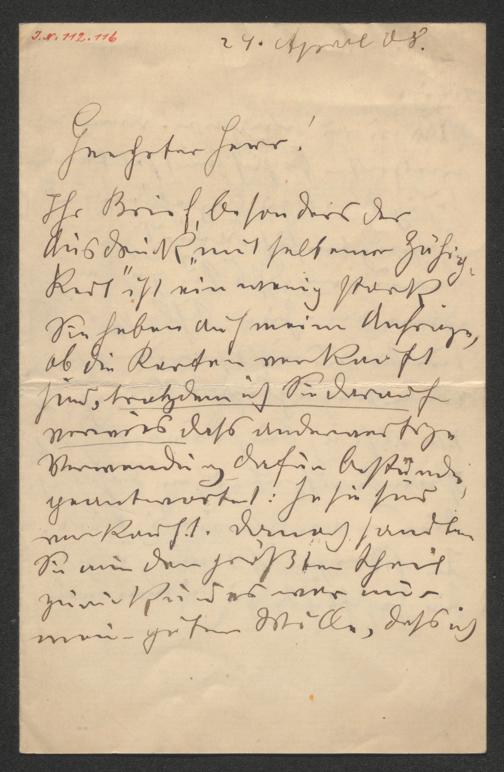 I.N. 112.116
24. April 08.
Geehrter Herr!
Ihr Brief, besonders der
Ausdruck „mit seltener Zähig-
keit" ist ein wenig stark
Sie haben auf meine Anfrage,
ob die Karten verkauft
sind, trotzdem ich Sie darauf
verwies dass anderweitige
Verwendung dafür bestünde,
geantwortet: Ja sie sind
verkauft. Danach sandten
Sie mir den größten Theil
zurück u. es war nur
mein guter Wille, dass ich